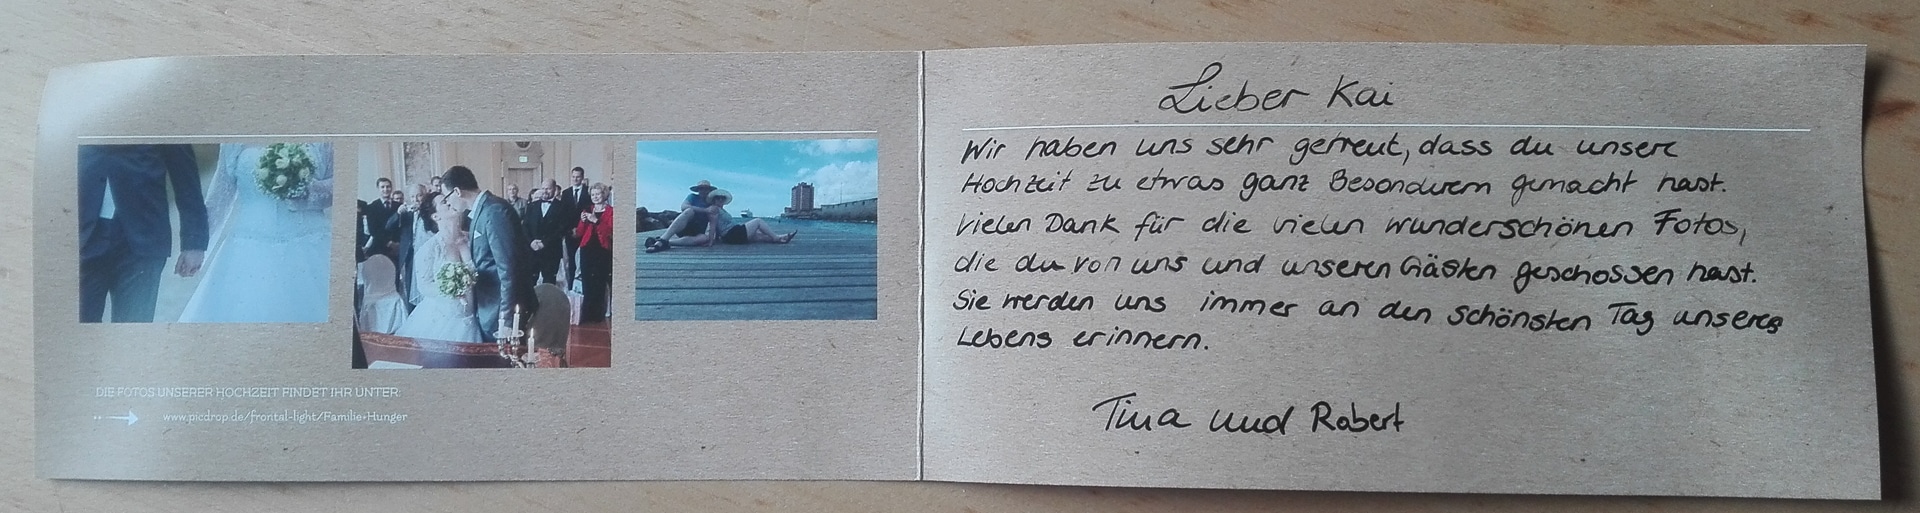 DIE FOTOS UNSERER HOCHZEIT FINDET IHR UNTER:
www.picdrop.de/frontal-light/Familie-Hunger
Lieber Kai
Wir haben uns sehr gefreut, dass du unsere
Hochzeit zu etwas ganz Besonderem gemacht hast.
Vielen Dank für die vielen wunderschönen Fotos,
die du von uns und unseren Gästen geschossen hast.
Sie werden uns immer an den schönsten Tag unseres
Lebens erinnern.
Tina und Robert